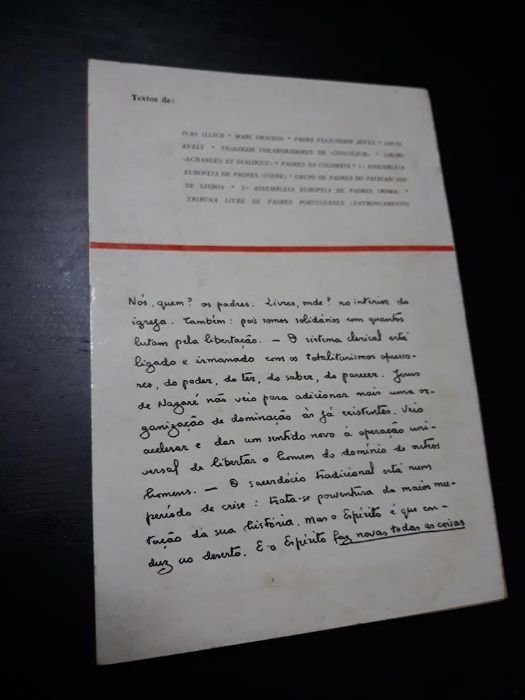 Textos de:
IVAN ILLICH * MARC ORAISON * PADRE FELICISSIMO ALVES * LOUIS
EVELY * TEÓLOGOS COLABORADORES DE «CONCILIUM» * GRUPO
«ECHANGES ET DIALOGUE» * PADRES DA COLÔMBIA * 1ª ASSEMBLEIA
EUROPEIA DE PADRES (COIRE) * GRUPO DE PADRES DO PATRIARCADO
DE LISBOA * 2ª ASSEMBLEIA EUROPEIA DE PADRES (ROMA) *
TRIBUNA LIVRE DE PADRES PORTUGUESES (ENTRONCAMENTO)
Nós, quem? os padres. Livres, onde? no interior da
igreja. Também: pois somos solidários com quantos
lutam pela libertação. — O sistema clerical está
ligado e irmanado com os totalitarismos opresso-
res, do poder, do ter, do saber, do parecer. Jesus
de Nazaré não veio para adicionar mais uma or-
ganização de dominação às já existentes. Veio
acelerar e dar um sentido novo à operação uni-
versal de libertar o homem do domínio de outros
homens. — O sacerdócio tradicional está num
período de crise: trata-se porventura da maior mu-
tação da sua história. Mas o Espírito é que con-
duz ao deserto. E o Espírito faz novas todas as coisas